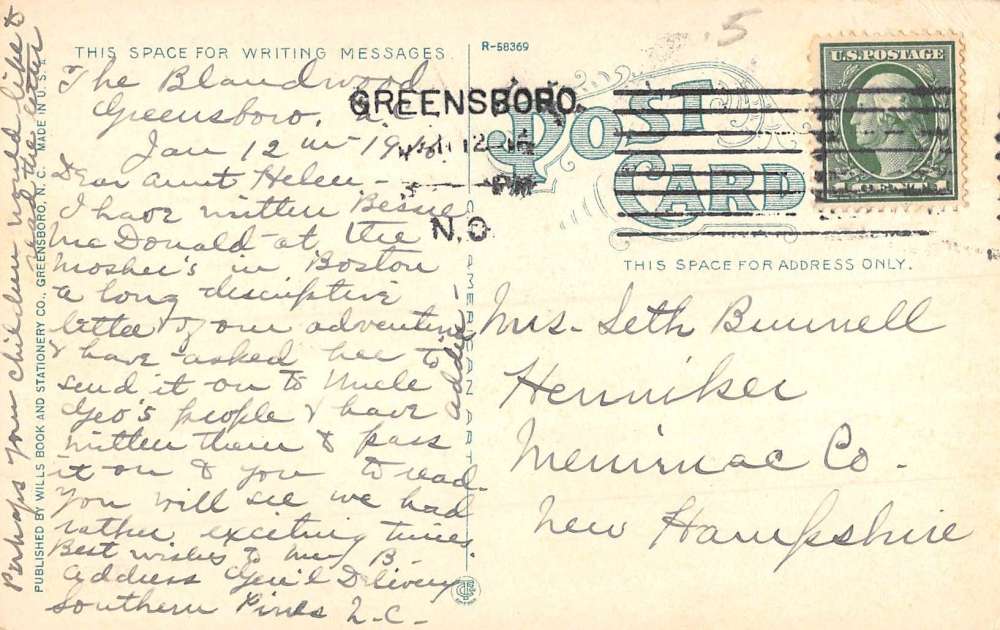 THIS SPACE FOR WRITING MESSAGES
R-58369
The Blandwood
Greensboro, N.C.
Jan 12th 19
Dear Aunt Helen -
I have written Bessie
McDonald at the
Mosher's in Boston
a long discriptive
letter of our adventure
& have asked her to
send it on to Uncle
Geo's people & have
written them to pass
it on to you to read.
You will see we had
rather exciting times
Best wishes to
B-
Address Gen'l Delivery
Southern Pines N.C-
Addie-
Perhaps your children would like to
the letter
PUBLISHED BY WILLS BOOK AND STATIONERY CO., GREENSBORO, N. C. MADE IN U.S.A.
AMERICAN ART
GREENSBORO.
12
PM
N.C.
5
POST
CARD
U.S. POSTAGE
THIS SPACE FOR ADDRESS ONLY.
Mrs- Seth Bunnell
Henniker
Merrimac Co.
New Hampshire